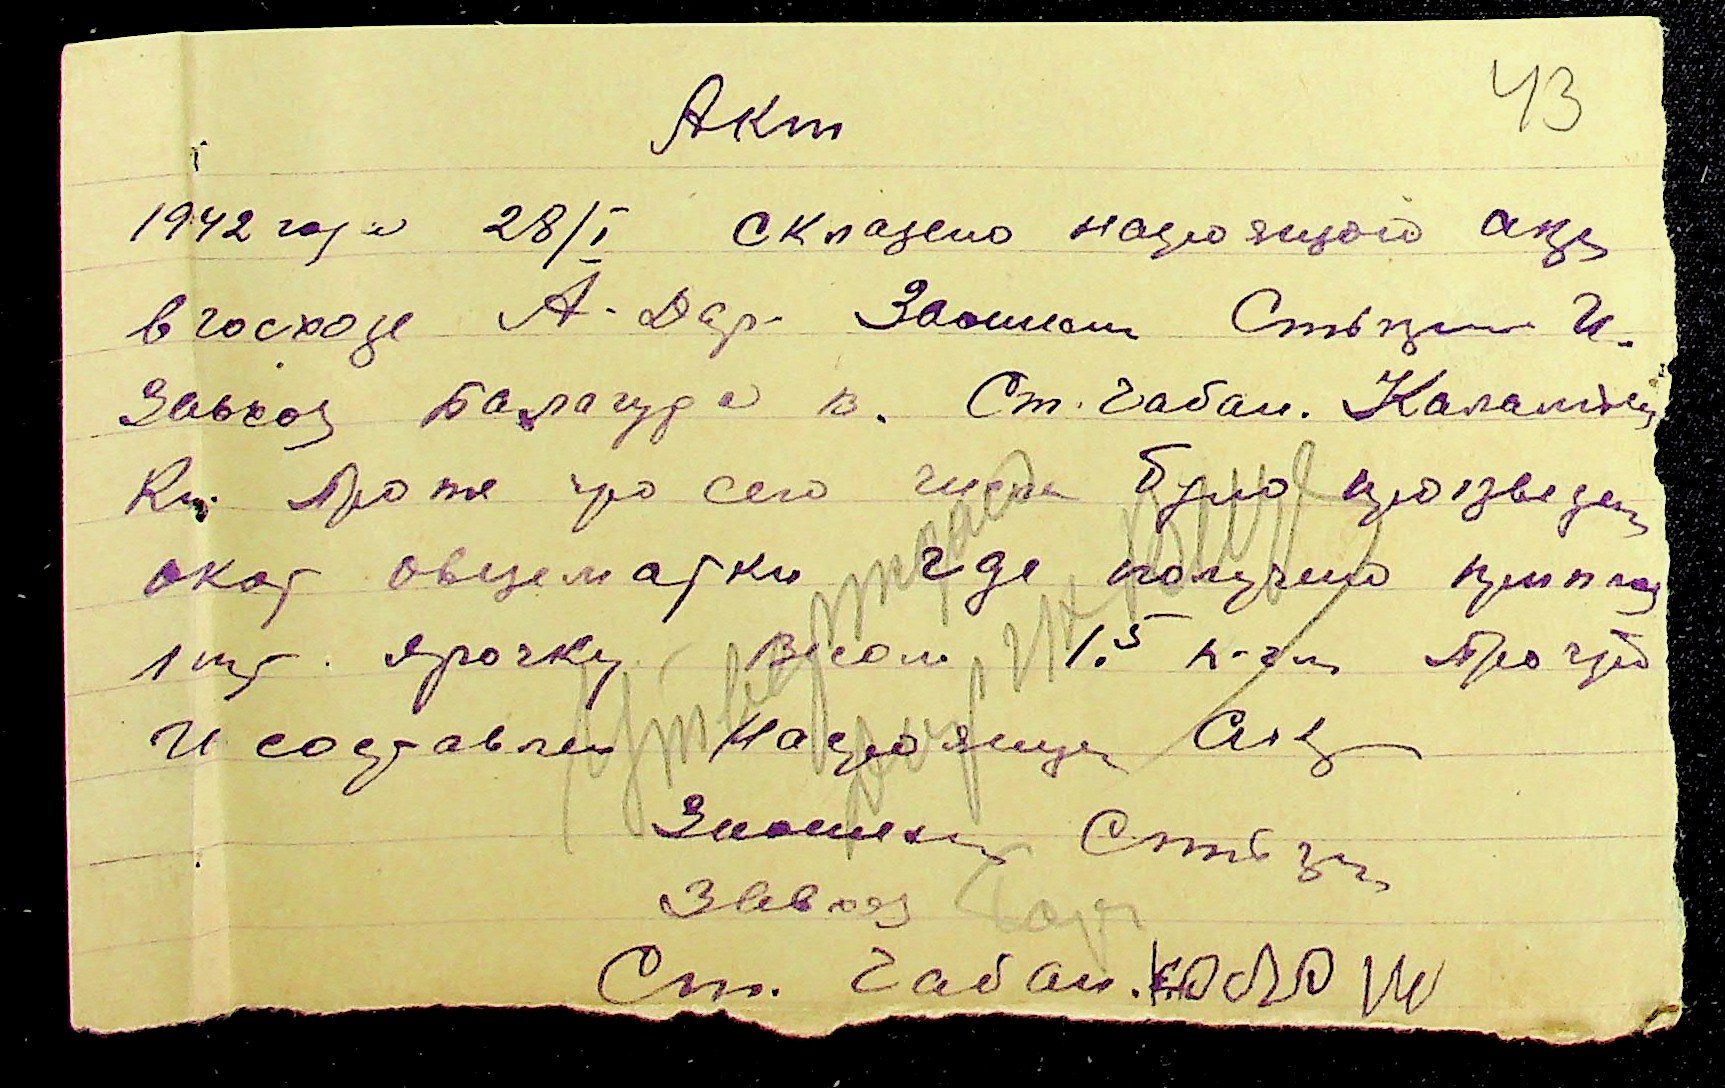 43
Акт
1942 года 28/I складено настоящой акт
в госходе А-Дар. Зоотехн Стецен И.
Завхоз Балагура В. Ст. Чабан. Каламиец
Ки. Про те що сего числа було произведен
окот овцематки где получено приплод
1 шт. ярочку. Весом 1.5 к-гм Про що
И составлен настоящи Акт
Зоотехн Стецен
Завхоз
Ст. Чабан.
Утверждаю